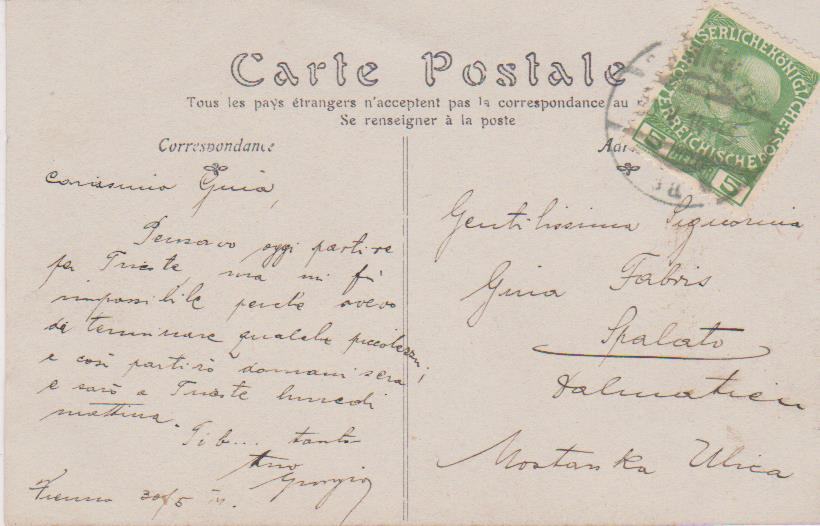 Carte Postale
Tous les pays étrangers n'acceptent pas la correspondance au
Se renseigner à la poste
Correspondance
Carissima Gina,
Pensavo oggi partire
per Trieste, ma mi fù
impossibile perchè avevo
da terminare qualche piccolezza,
e così partirò domani sera
e sarò a Trieste lunedi
mattina.
Ti b... tanto
tuo
Giorgio
Vienna 30/5
Adr
Gentilissima Signorina
Gina Fabris
Spalato
Dalmatien
Mostarska Ulica
KAISERLICHE KÖNIGLICHE
ÖSTERREICHISCHE POST
5 5